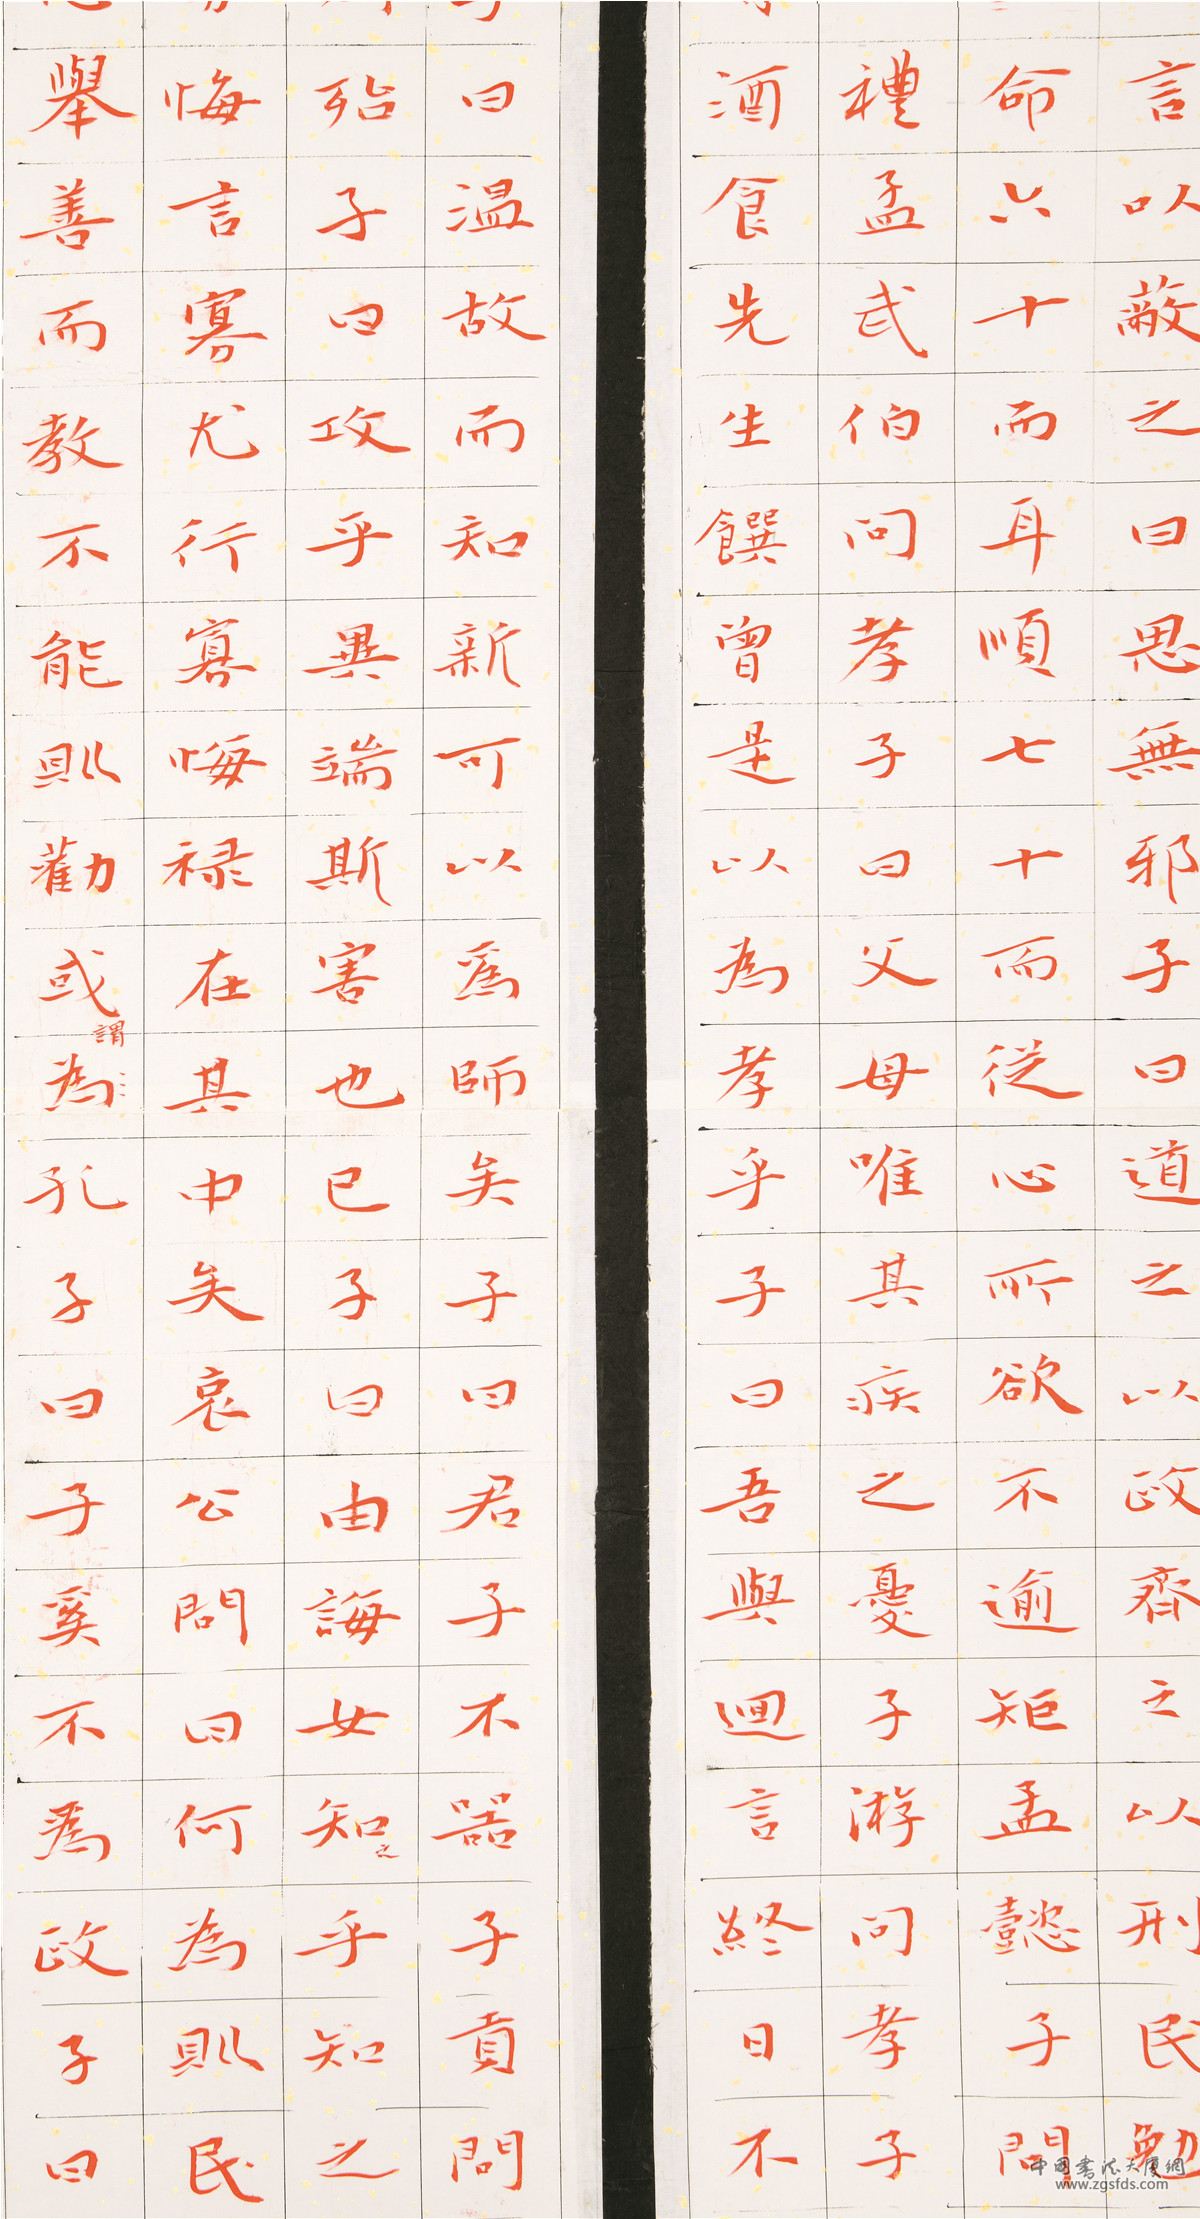 言以蔽之曰思無邪子曰道之以政齊之以刑民勉
命六十而耳順七十而從心所欲不逾矩孟懿子問
禮孟武伯問孝子曰父母唯其疾之憂子游問孝子
酒食先生饌曾是以為孝乎子曰吾與迴言終日不
曰温故而知新可以爲師矣子曰君子不器子貢問
殆子曰攻乎異端斯害也已子曰由誨女知之乎知之
悔言寡尤行寡悔禄在其中矣哀公問曰何為則民
舉善而教不能則勸或謂為孔子曰子奚不爲政子曰
中国書法大厦網
www.zgsfds.com